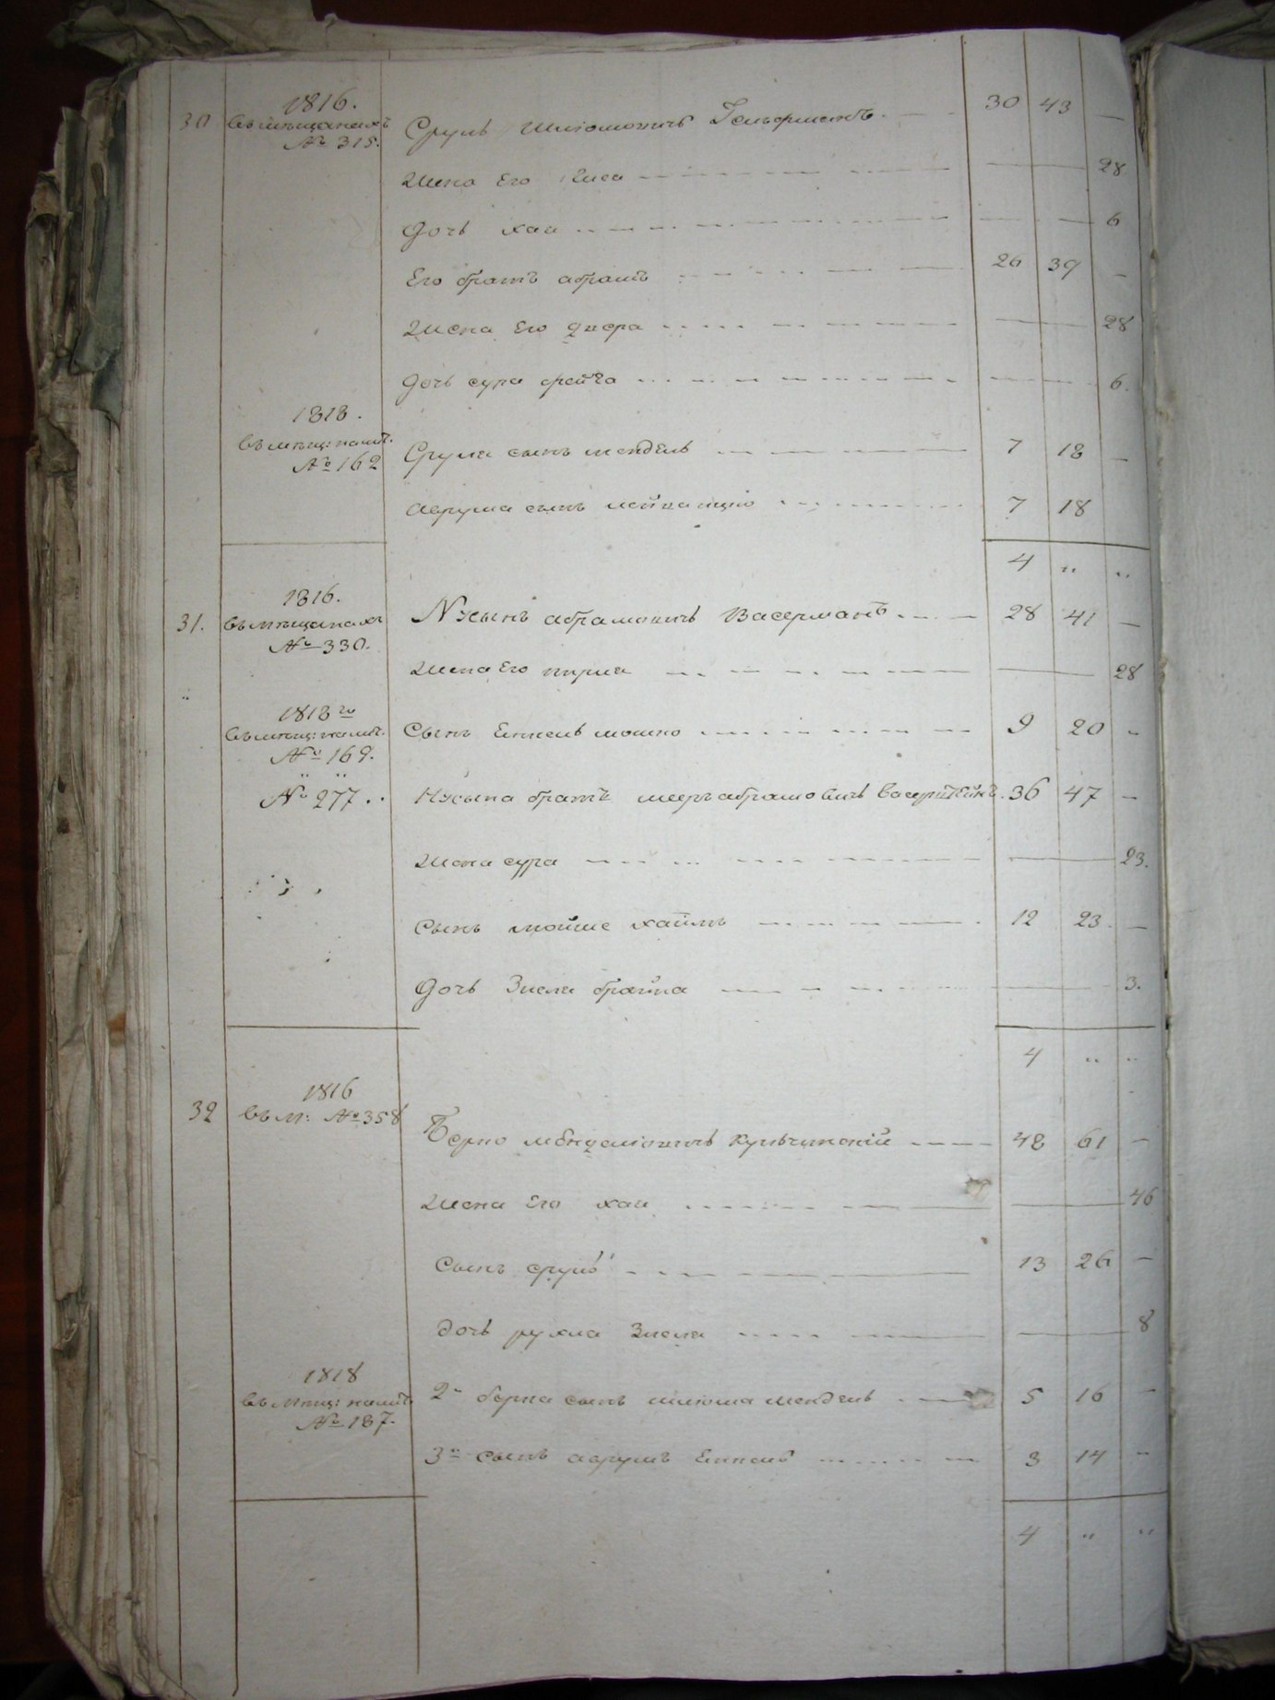 30 1816. Въ мѣщанахъ № 315. Сруль Шліомовичъ Гельфманъ. 30 43 —
Жена Его Лиса 28
Дочь хая 6
Его братъ абрамъ 26 39 —
Жена Его двера 28
Дочь сура фейга 6.
1818. Въ мѣщ: камъ. № 162 Сруля сынъ мендель 7 18 —
Аврума сынъ 7 18
4 " "
31. 1816. Въ мѣщанахъ № 330. Нусынъ абрамовичъ Васерманъ 28 41 —
Жена Его 28
1818го въ мѣщ: № 169. Сынъ Еннель мошко 9 20 -
№ 277. Нусына братъ мееръ абрамовичъ васерштейнъ. 36 47 —
Жена сура 23.
Сынъ мойше хаимъ 12 23. —
Дочь Зисля брайна 3.
4 " "
32 1816 Въ м: № 358 Берко менделіовичъ Кульчинскій 48 61 —
Жена Его хая 46
Сынъ сруль 13 26 —
Дочь рухля Зисля 8
1818 Въ мѣщ: № 187. 2й берка сынъ шліома мендель 5 16 -
3й сынъ аврумъ Еннель 3 14 -
4 " "